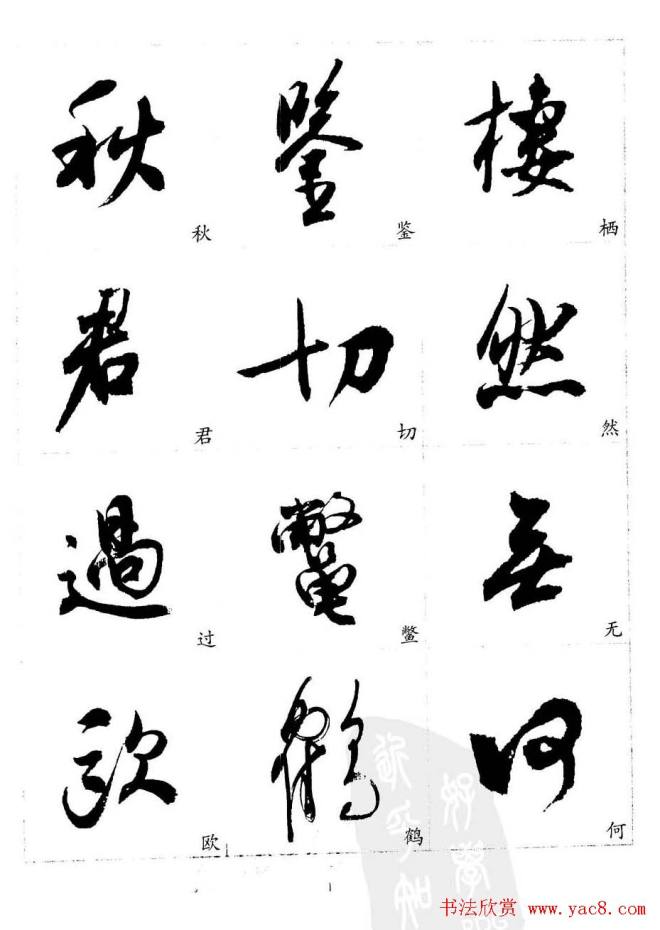 秋 鉴 栖
秋 鑒 棲
君 切 然
君 切 然
過 鼈 無
过 鳖 无
欧 鶴 何
欧 鹤 何
1
书法欣赏 www.yac8.com